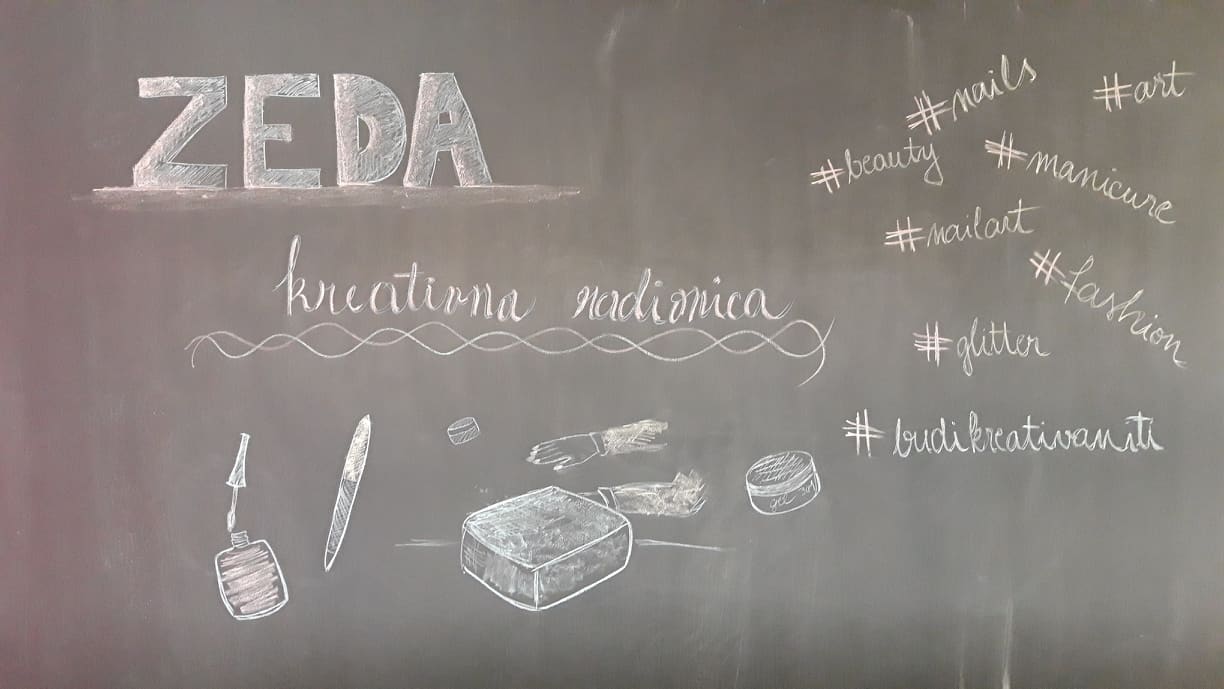 ZEDA
kreativna radionica
#nails
#art
#beauty
#manicure
#nailart
#fashion
#glitter
#budikreativaniti
gel 30ml